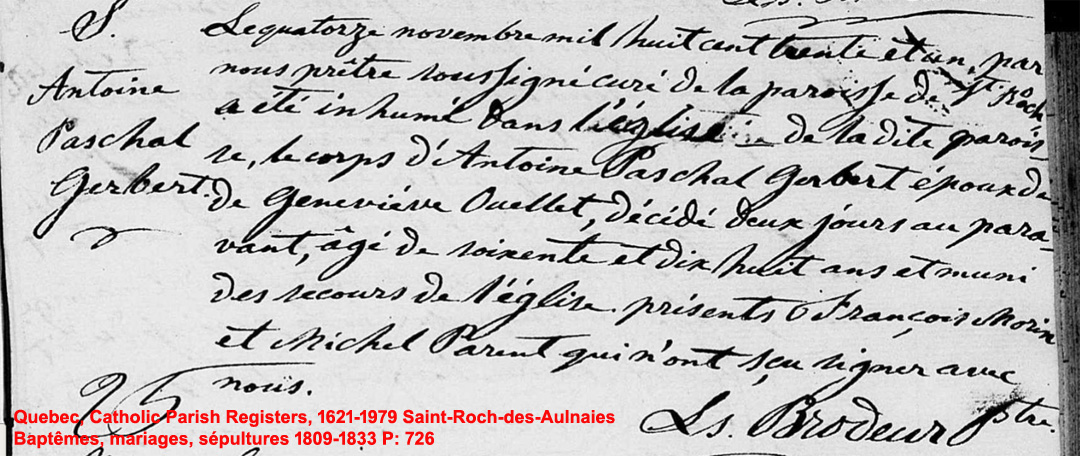 S.
Antoine
Paschal
Gerbert.
Le quatorze novembre mil huit cent trente et un, par
nous prêtre soussigné curé de la paroisse de St. Roch
a été inhumé dans l'église de la dite parois-
se, le corps d'Antoine Paschal Gerbert époux de
de Geneviève Ouellet, décédé deux jours au para-
vant, âgé de soixente et dix huit ans et muni
des secours de l'église présents François Morin
et Michel Parent qui n'ont sçu signer avec
nous.
Ls. Brodeur ptre.
Quebec, Catholic Parish Registers, 1621-1979 Saint-Roch-des-Aulnaies
Baptêmes, mariages, sépultures 1809-1833 P: 726